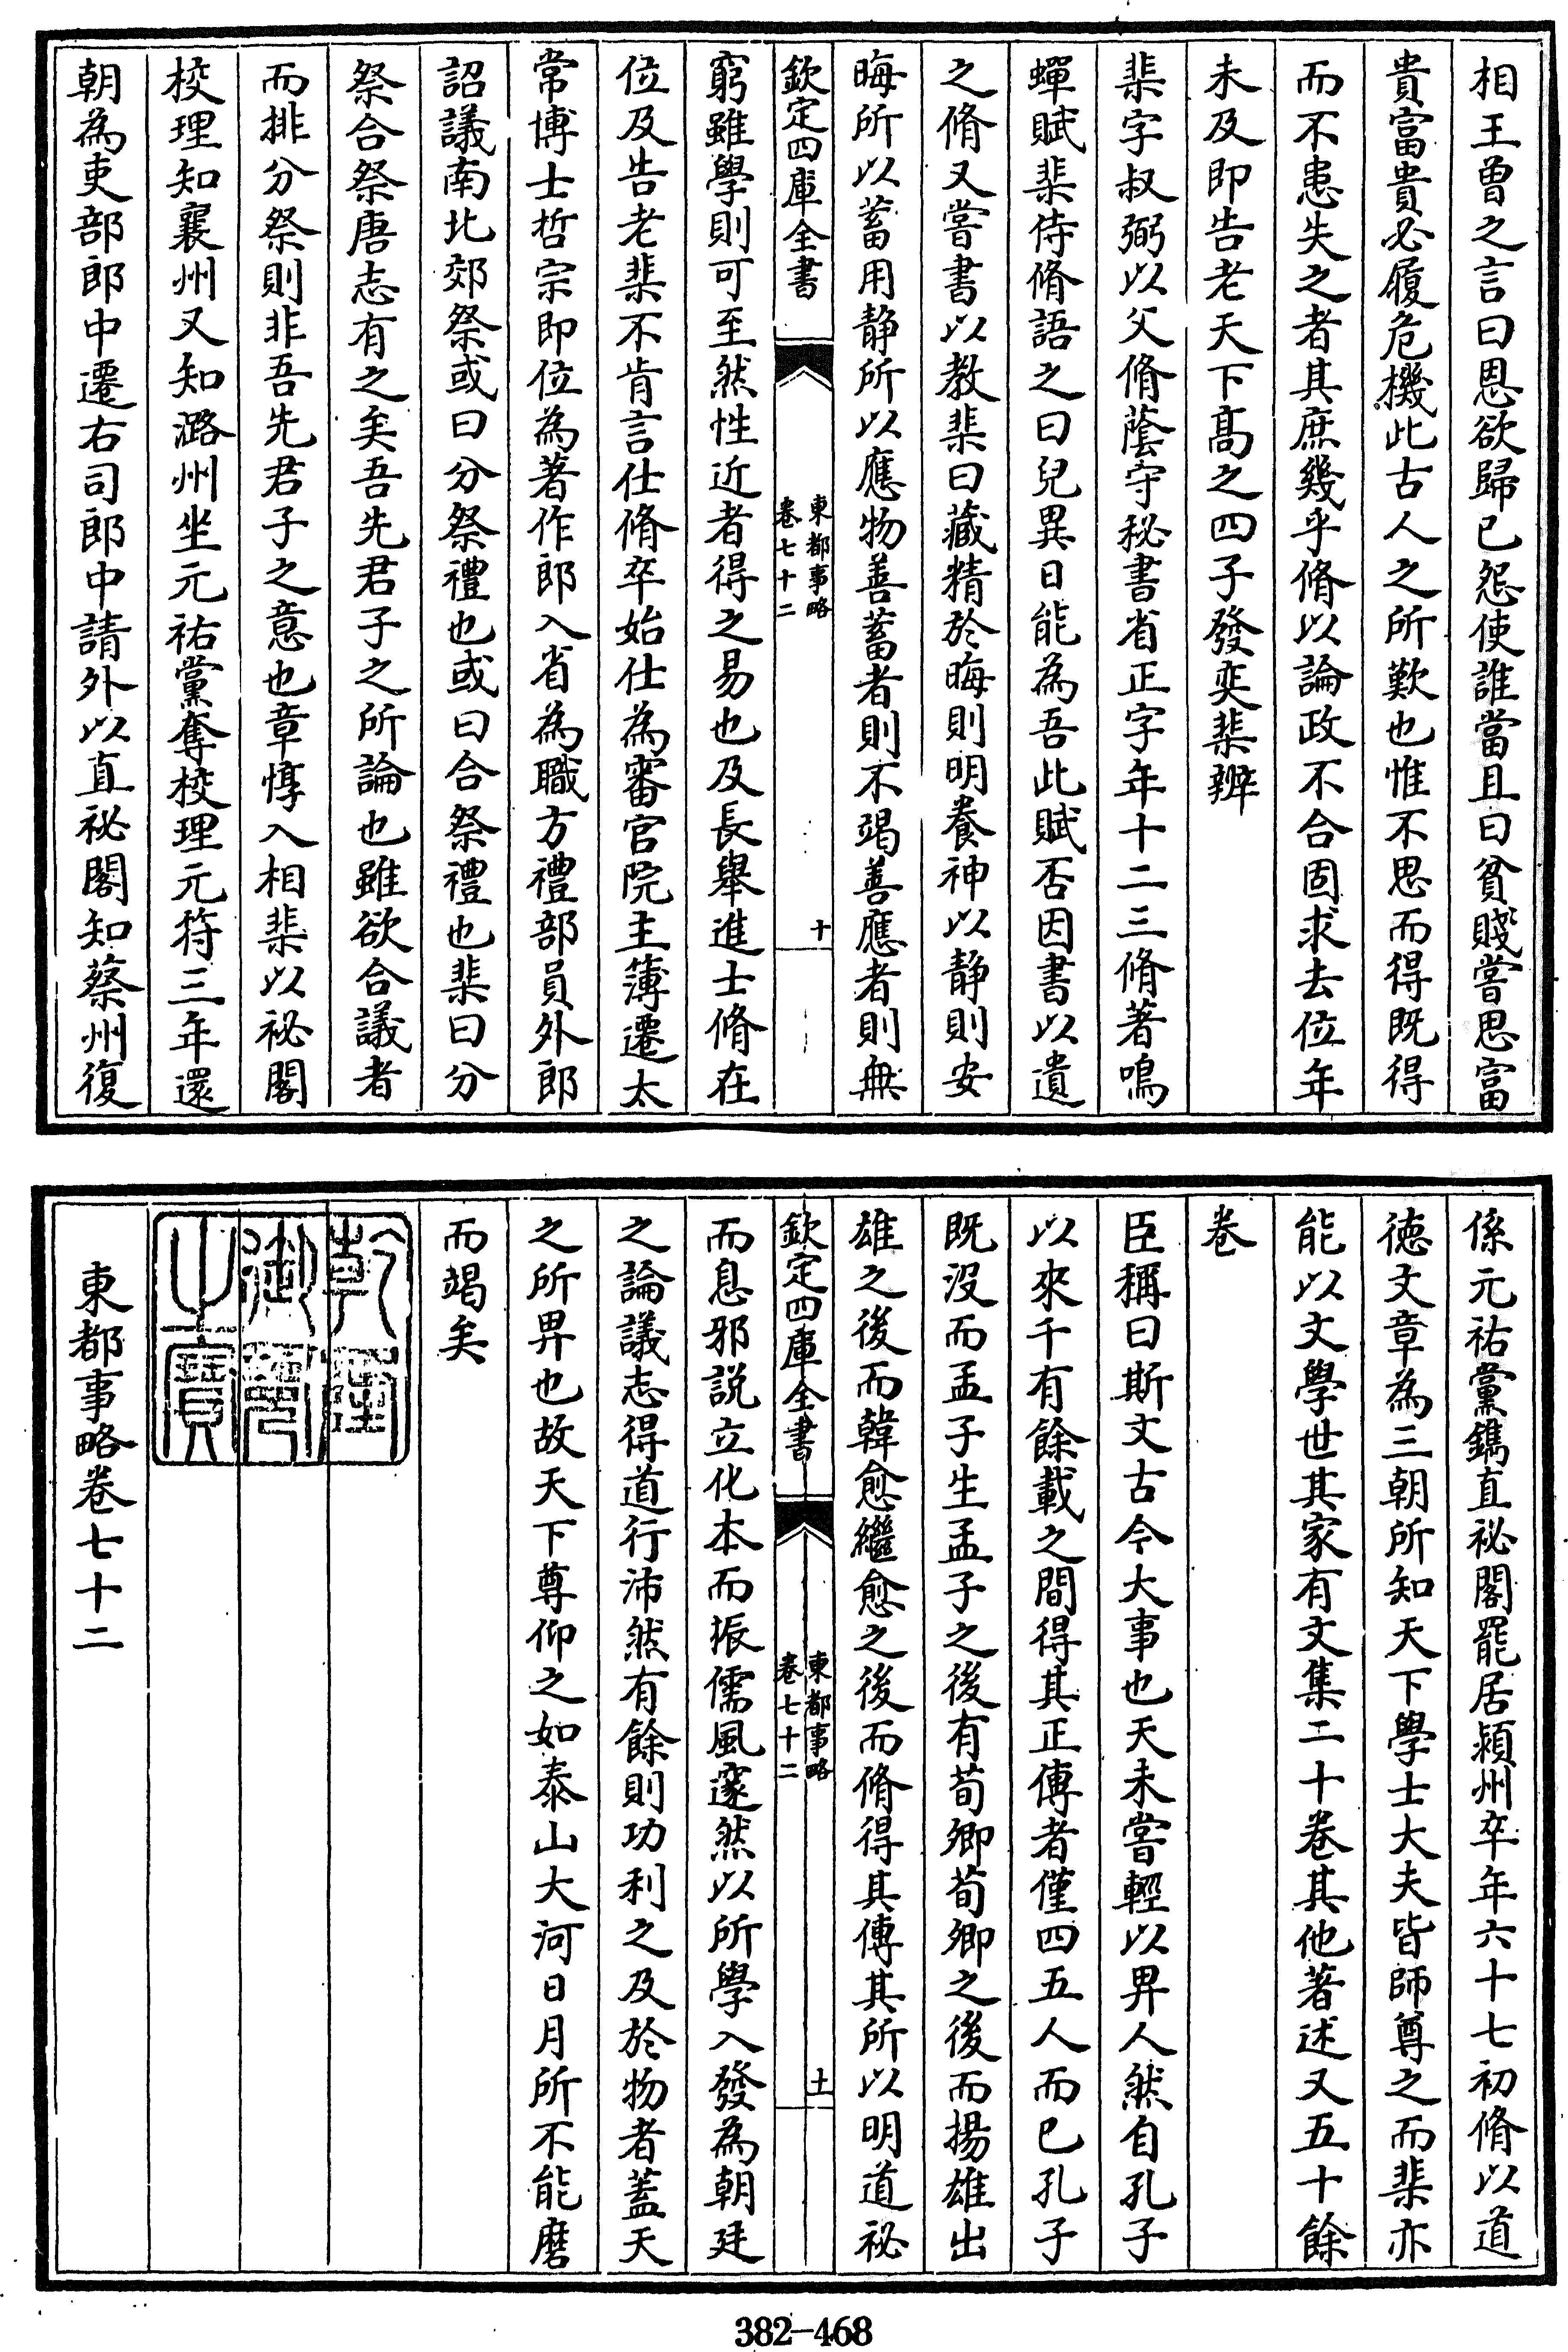 相王曾之言曰恩欲歸己怨使誰當且曰貧賤嘗思富
貴富貴必履危機此古人之所歎也惟不思而得既得
而不患失之者其庶幾乎脩以論政不合固求去位年
未及即告老天下髙之四子發奕棐辨
棐字叔弼以父脩蔭守秘書省正字年十二三脩著鳴
蟬賦棐侍脩語之曰兒異日能為吾此賦否因書以遺
之脩又嘗書以教棐曰藏精於晦則明養神以静則安
晦所以蓄用静所以應物善蓄者則不竭善應者則無
欽定四庫全書
東都事略
卷七十二
十
窮雖學則可至然性近者得之易也及長舉進士脩在
位及告老棐不肯言仕脩卒始仕為審官院主簿遷太
常博士哲宗即位為著作郎入省為職方禮部員外郎
詔議南北郊祭或曰分祭禮也或曰合祭禮也棐曰分
祭合祭唐志有之矣吾先君子之所論也雖欲合議者
而排分祭則非吾先君子之意也章惇入相棐以祕閣
校理知襄州又知潞州坐元祐黨奪校理元符三年還
朝為吏部郎中遷右司郎中請外以直祕閣知蔡州復
係元祐黨鐫直祕閣罷居潁州卒年六十七初脩以道
徳文章為三朝所知天下學士大夫皆師尊之而棐亦
能以文學世其家有文集二十卷其他著述又五十餘
卷
臣稱曰斯文古今大事也天未嘗輕以畀人然自孔子
以來千有餘載之間得其正傳者僅四五人而已孔子
既沒而孟子生孟子之後有荀卿荀卿之後而揚雄出
雄之後而韓愈繼愈之後而脩得其傳其所以明道祕
欽定四庫全書
東都事略
卷七十二
十一
而息邪說立化本而振儒風邃然以所學入發為朝廷
之論議志得道行沛然有餘則功利之及於物者蓋天
之所畀也故天下尊仰之如泰山大河日月所不能磨
而竭矣
乾隆
御覽
之寶
東都事略卷七十二
382-468